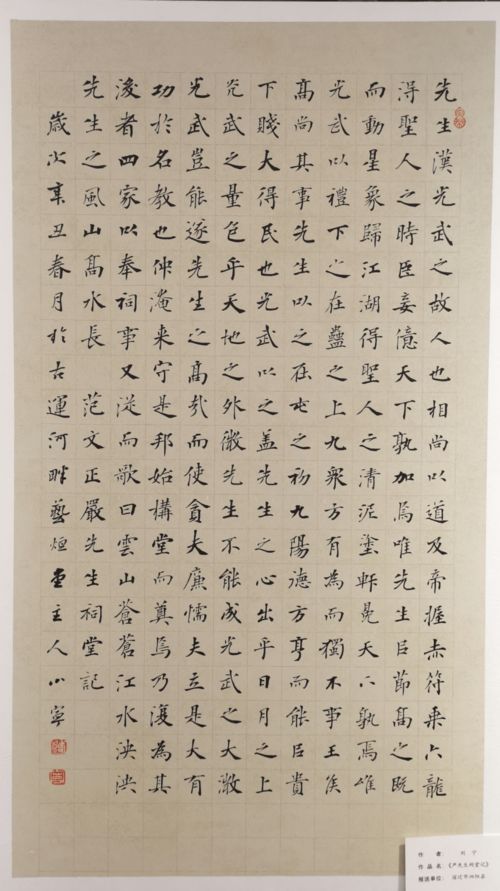 先生漢光武之故人也相尚以道及帝握赤符乘六龍
得聖人之時臣妾億天下孰加焉唯先生㠯節高之既
而動星象歸江湖得聖人之清泥塗軒冕天下孰焉惟
光武以禮下之在蠱之上九衆方有為而獨不事王侯
高尚其事先生以之在屯之初九陽德方亨而能㠯貴
下賤大得民也光武以之蓋先生之心出乎日月之上
光武之量包乎天地之外微先生不能成光武之大微
光武豈能遂先生之高哉而使貪夫廉懦夫立是大有
功於名教也仲淹来守是邦始構堂而奠焉乃復為其
後者四家以奉祠事又從而歌曰雲山蒼蒼江水泱泱
先生之風山高水長 范文正嚴先生祠堂記
歲次辛丑春月於古運河畔藝烜堂主人小寧
作 者: 刘 宁
作 品 名:《严先生祠堂记》
报送单位: 宿迁市泗阳县